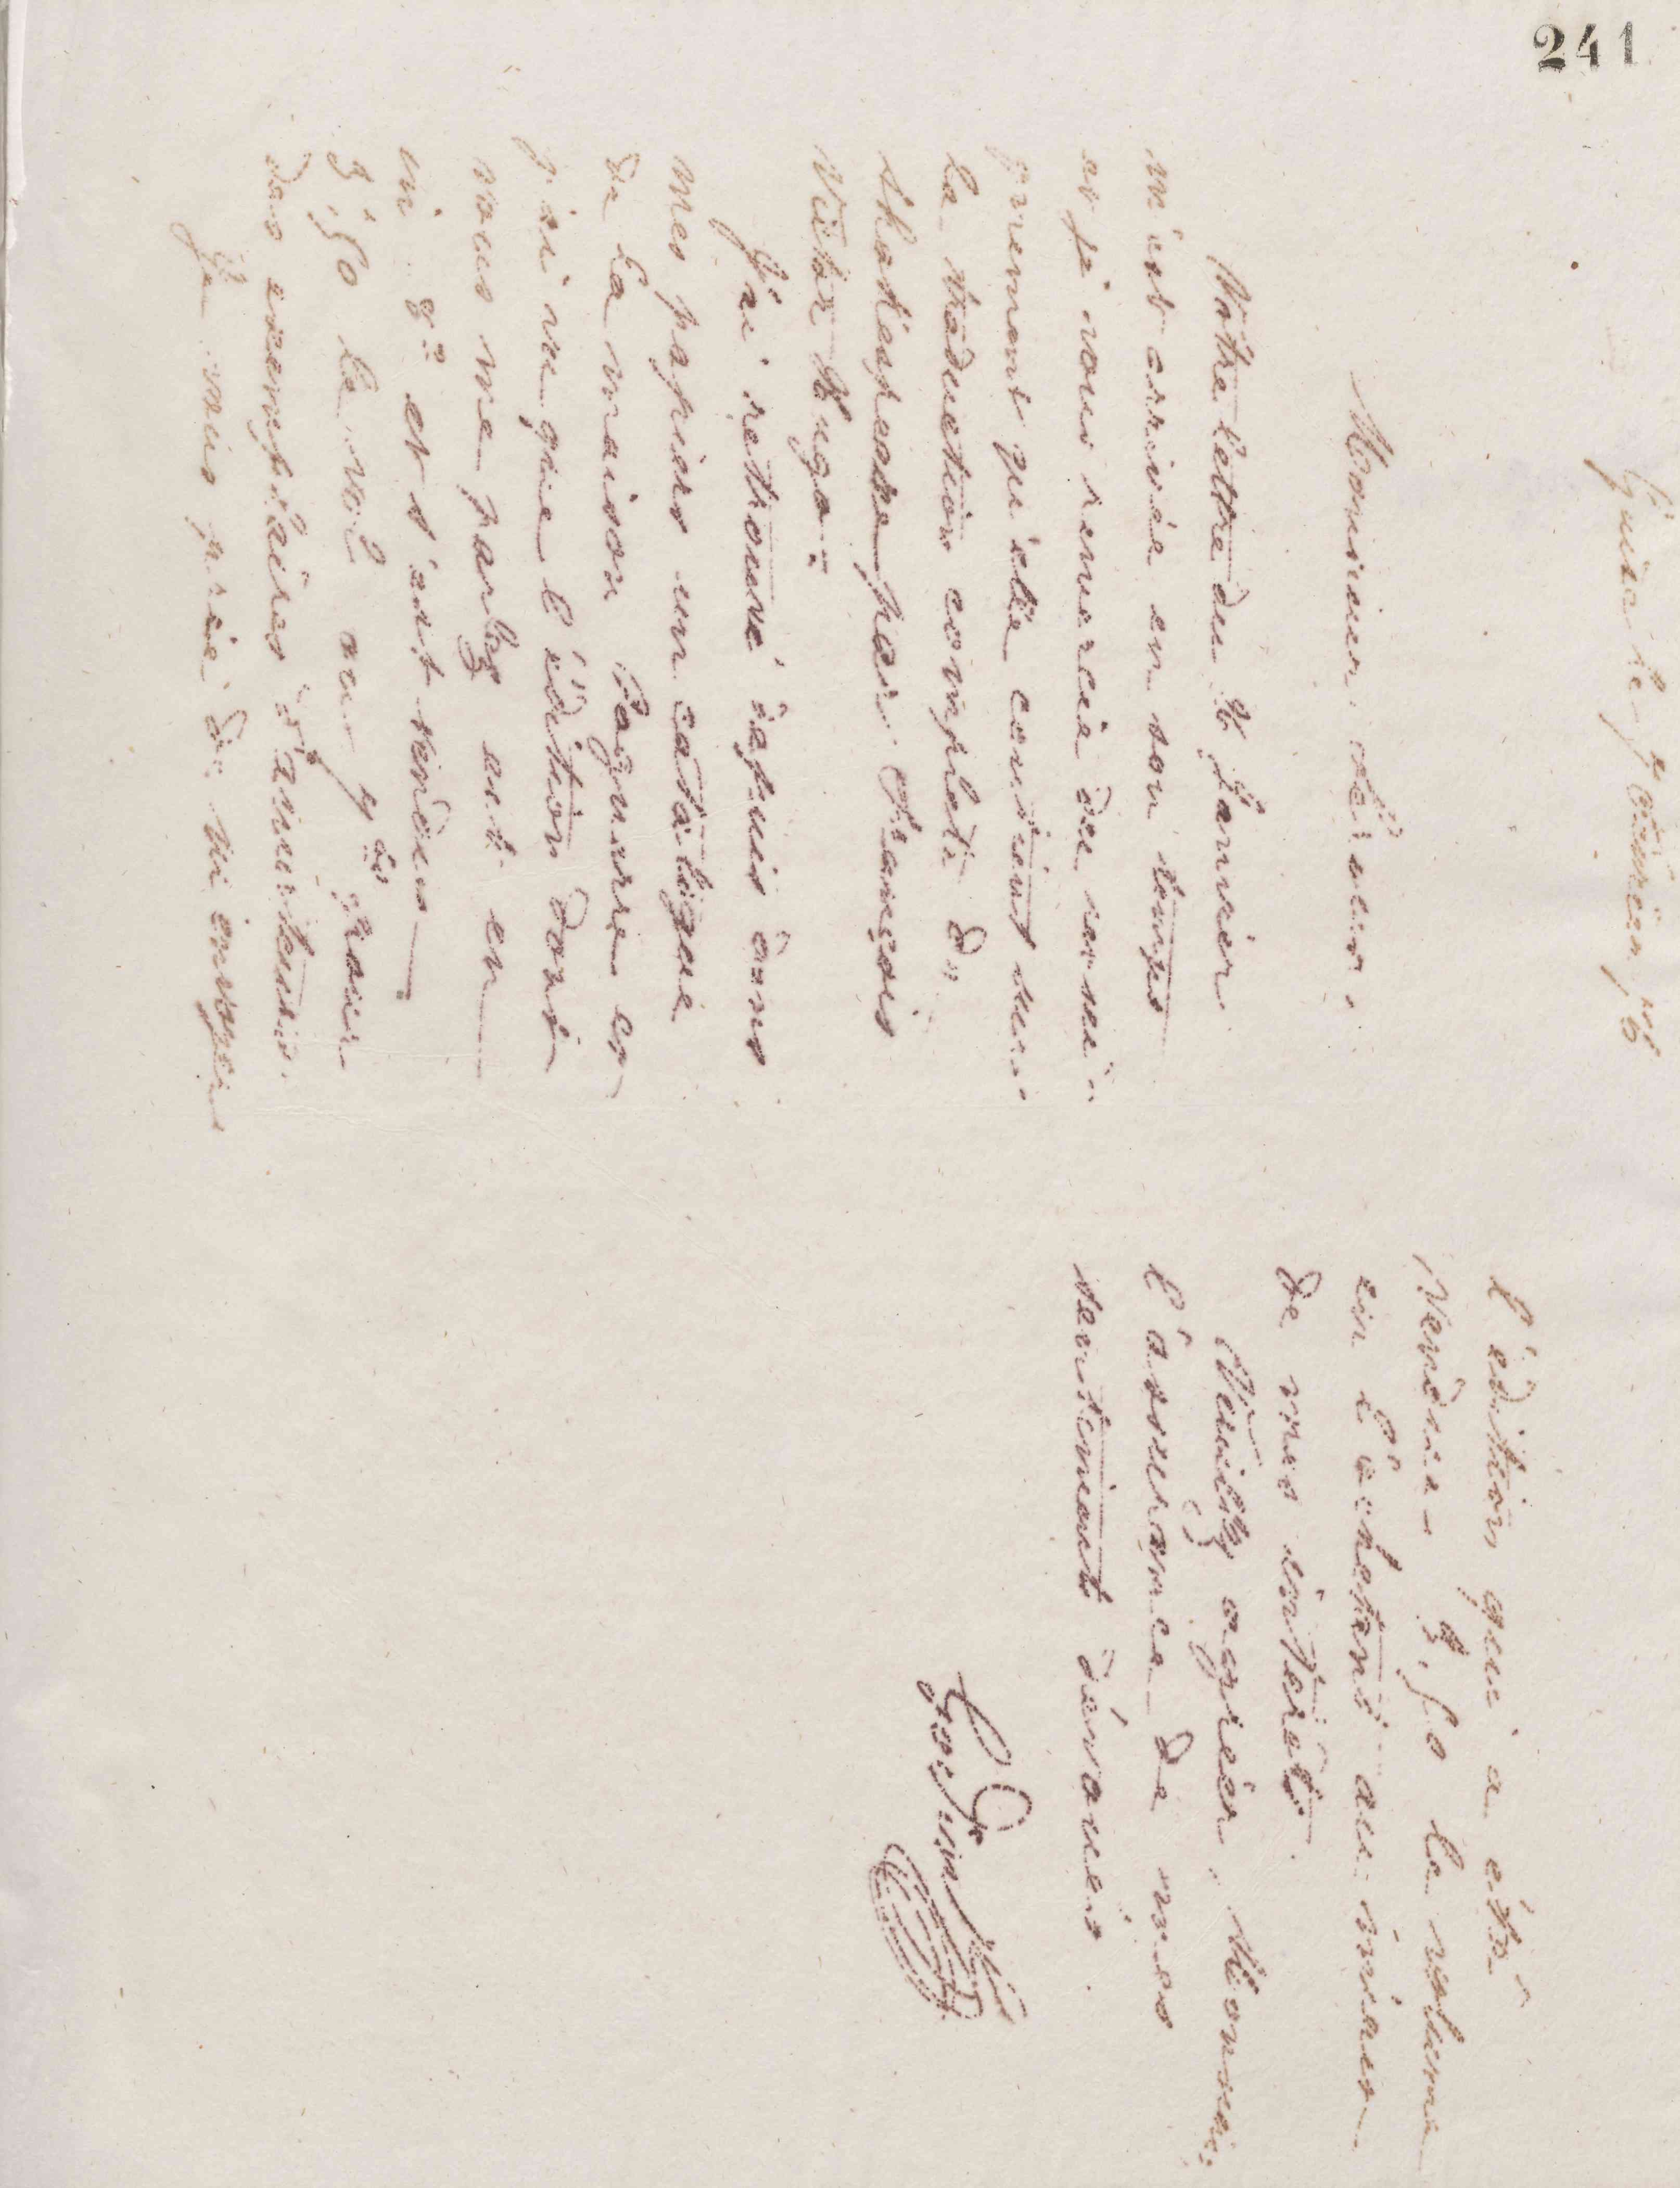 241
Guise le 7 février 78
Monsieur
Votre lettre du 26 Janvier
m'est arrivée en son temps
et je vous remercie du rensei-
gnement qu'elle contient sur
la traduction complète de
Shakespeare par François
Victor Hugo.
J'ai retrouvé depuis dans
mes papiers un catalogue
de la maison Pagnerre et
j'ai vu que l'édition dont
vous me parlez est en
in 8° et s'est vendue
3,50 le vol au lieu
des exemplaires d'amateurs.
Je vous prie de m'envoyer
l'édition qui a été
vendue 3,50 le volume
en l'achetant au mieux
de mes intérêts.
Veuillez agréer, Monsieur
l'assurance de mes
sentiments dévoués.
Godin